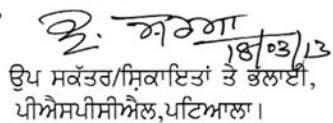 ਵੀ. ਸ਼ਰਮਾ
18/03/13
ਉਪ ਸਕੱਤਰ/ਸ਼ਿਕਾਇਤਾਂ ਤੇ ਭਲਾਈ,
ਪੀਐਸਪੀਸੀਐਲ,ਪਟਿਆਲਾ।